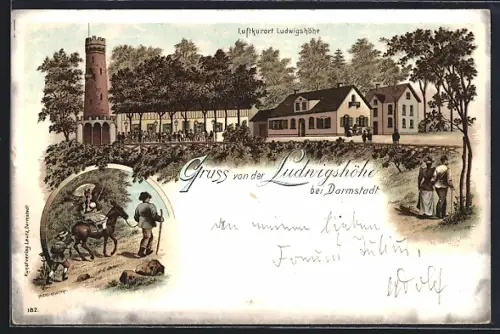 Luftkurort Ludwigshöhe
Gruss von der Ludwigshöhe
bei Darmstadt
an meinen lieben
Freund Julius,
Adolf
Kunstverlag Lautz, Darmstadt
182.